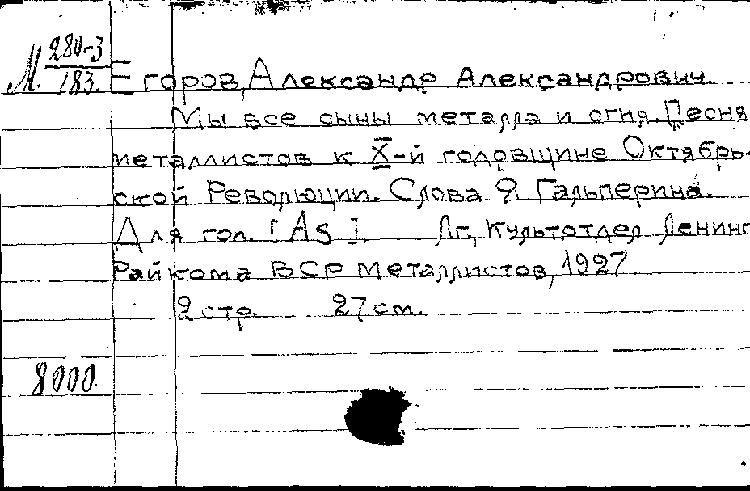 М. 280-3
183.
Егоров, Александр Александрович.
Мы все сыны металла и огня. Песня
металлистов к X-й годовщине Октябрь-
ской Революции. Слова Я. Гальперина.
Для гол. [As]. Лг, Культотдел Ленинг
Райкома ВСР металлистов, 1927.
2 стр. 27 см.
8000.